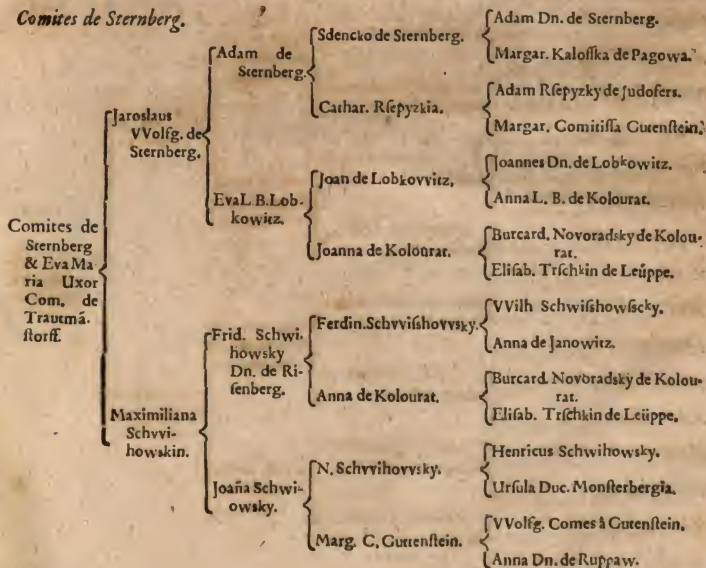 Comites de Sternberg.
Comites de
Sternberg
& Eva Ma-
ria Uxor
Com. de
Trautmã-
ſtorff.
Jaroslaus
VVolfg. de
Sternberg.
Maximiliana
Schvvi-
howskin.
Adam de
Sternberg.
Eva L. B. Lob-
kowitz.
Frid. Schwi-
howsky
Dn. de Ri-
ſenberg.
Joãna Schwi-
owsky.
Sdencko de Sternberg.
Cathar. Rſepyzkia.
Joan de Lobkovvitz,
Joanna de Kolourat.
Ferdin. Schvviſshovvsky.
Anna de Kolourat.
N. Schvvihovvsky.
Marg. C. Guttenſtein.
Adam Dn. de Sternberg.
Margar. Kaloſſka de Pagowa.
Adam Rſepyzky de Judofers.
Margar. Comitiſſa Gutenſtein.
Joannes Dn. de Lobkowitz.
Anna L. B. de Kolourat.
Burcard. Novoradsky de Kolou-
rat.
Eliſab. Trſchkin de Leüppe.
VVilh Schwiſshowſcky.
Anna de Janowitz.
Burcard. Novoradsky de Kolou-
rat.
Eliſab. Trſchkin de Leüppe.
Henricus Schwihowsky.
Urſula Duc. Monſterbergia.
VVolfg. Comes à Gutenſtein.
Anna Dn. de Ruppaw.